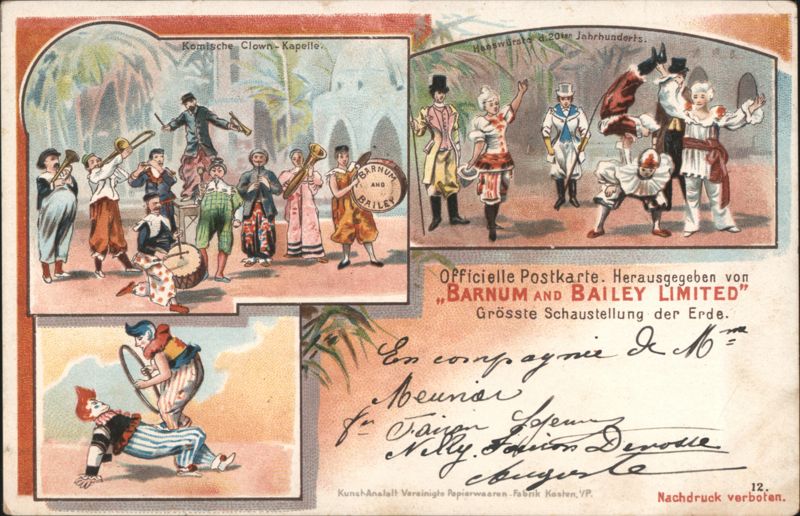 Komische Clown-Kapelle.
Hanswürste d. 20ten Jahrhunderts.
BARNUM
AND
BAILEY
Officielle Postkarte. Herausgegeben von
„BARNUM AND BAILEY LIMITED"
Grösste Schaustellung der Erde.
En compagnie de Mme
Meunier
Nelly
Auguste
Kunst-Anstalt Vereinigte Papierwaaren-Fabrik Kosten, i/P.
12.
Nachdruck verboten.